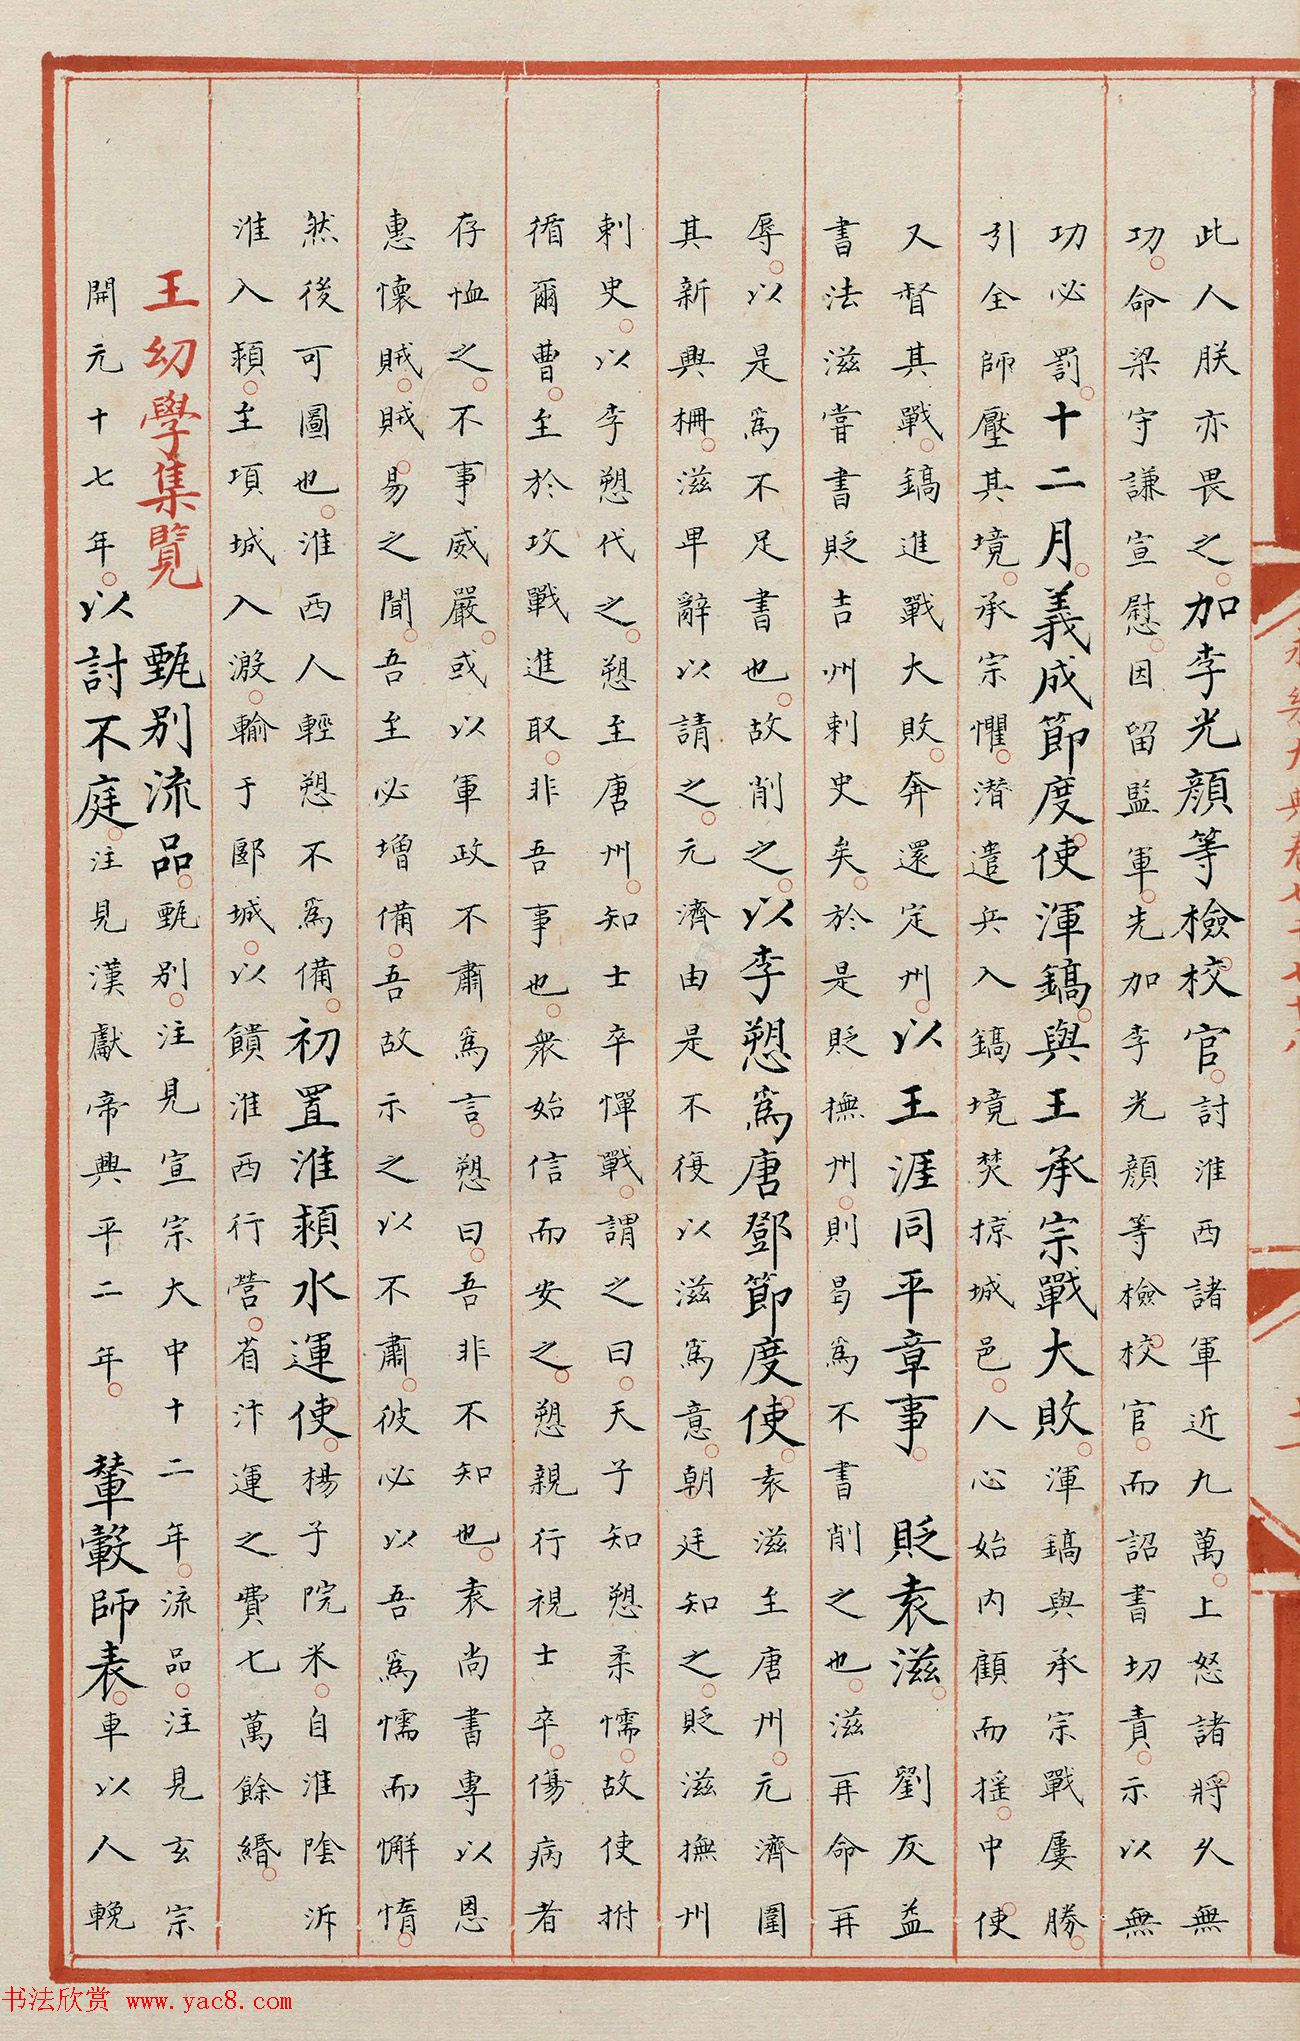 此人朕亦畏之加李光顔等檢校官討淮西諸軍近九萬上怒諸將久無
功命梁守謙宣慰因留監軍先加李光顔等檢校官而詔書切責示以無
功必罰十二月義成節度使渾鎬與王承宗戰大敗渾鎬與承宗戰屢勝
引全師壓其境承宗懼潜遣兵入鎬境焚掠城邑人心始内顧而摇中使
又督其戰鎬進戰大敗奔還定州以王涯同平章事 貶袁滋 劉友益
書法滋嘗書貶吉州刺史矣於是貶撫州則曷爲不書削之也滋再命再
辱以是爲不足書也故削之以李愬爲唐鄧節度使袁滋至唐州元濟圍
其新興柵滋卑辭以請之元濟由是不復以滋爲意朝廷知之貶滋撫州
刺史以李愬代之愬至唐州知士卒憚戰謂之曰天子知愬柔懦故使拊
循爾曹至於攻戰進取非吾事也衆始信而安之愬親行視士卒傷病者
存恤之不事威嚴或以軍政不肅爲言愬曰吾非不知也袁尚書專以恩
惠懷賊賊易之聞吾至必增備吾故示之以不肅彼必以吾爲懦而懈惰
然後可圖也淮西人輕愬不爲備初置淮潁水運使楊子院米自淮陰泝
淮入潁至項城入溵輸于郾城以饋淮西行營省汴運之費七萬餘緡
王幼學集覽 甄别流品甄别注見宣宗大中十二年流品注見玄宗
開元十七年以討不庭注見漢獻帝興平二年 輦轂師表車以人輓
永樂大典卷七千七十八
十一
书法欣赏 www.yac8.com